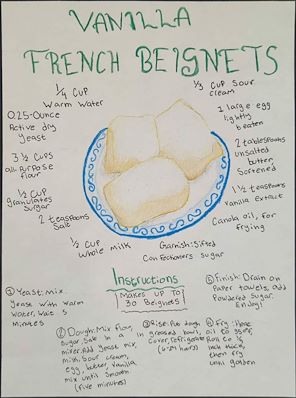 VANILLA
FRENCH BEIGNETS
1/4 CUP
Warm Water
0.25-Ounce
Active dry
Yeast
3 1/2 CUPS
all-Purpose
flour
1/2 CUP
Granulates
Sugar
2 teaspoons
Salt
1/2 CUP
Whole milk
1/3 CUP Sour
cream
1 large egg
lightly
beaten
2 tablespoons
unsalted
butter,
Softened
1 1/2 teaspoons
Vanilla Extract
Canola oil, for
frying
Garnish: Sifted
Confectioners sugar
Instructions
MAKES UP TO
30 Beignets
① Yeast: Mix
Yeast with Warm
Water, Wait 5
Minutes
② Dough: Mix flour,
Sugar, Salt in a
mixer. Add Yeast mix,
milk, Sour cream,
egg, butter, Vanilla,
mix Until Smooth
(five minutes)
③ Rise: Put dough
in greased bowl,
Cover, refrigerate
(6-24 hours)
④ Fry: Heat
oil to 350F,
Roll to 1/4
inch thick,
then fry
until golden
⑤ Finish: Drain on
Paper towels, add
Powdered Sugar.
Enjoy!